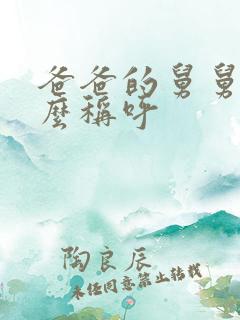 爸爸的舅舅
麼稱呼
陶良辰
未经同意禁止转载